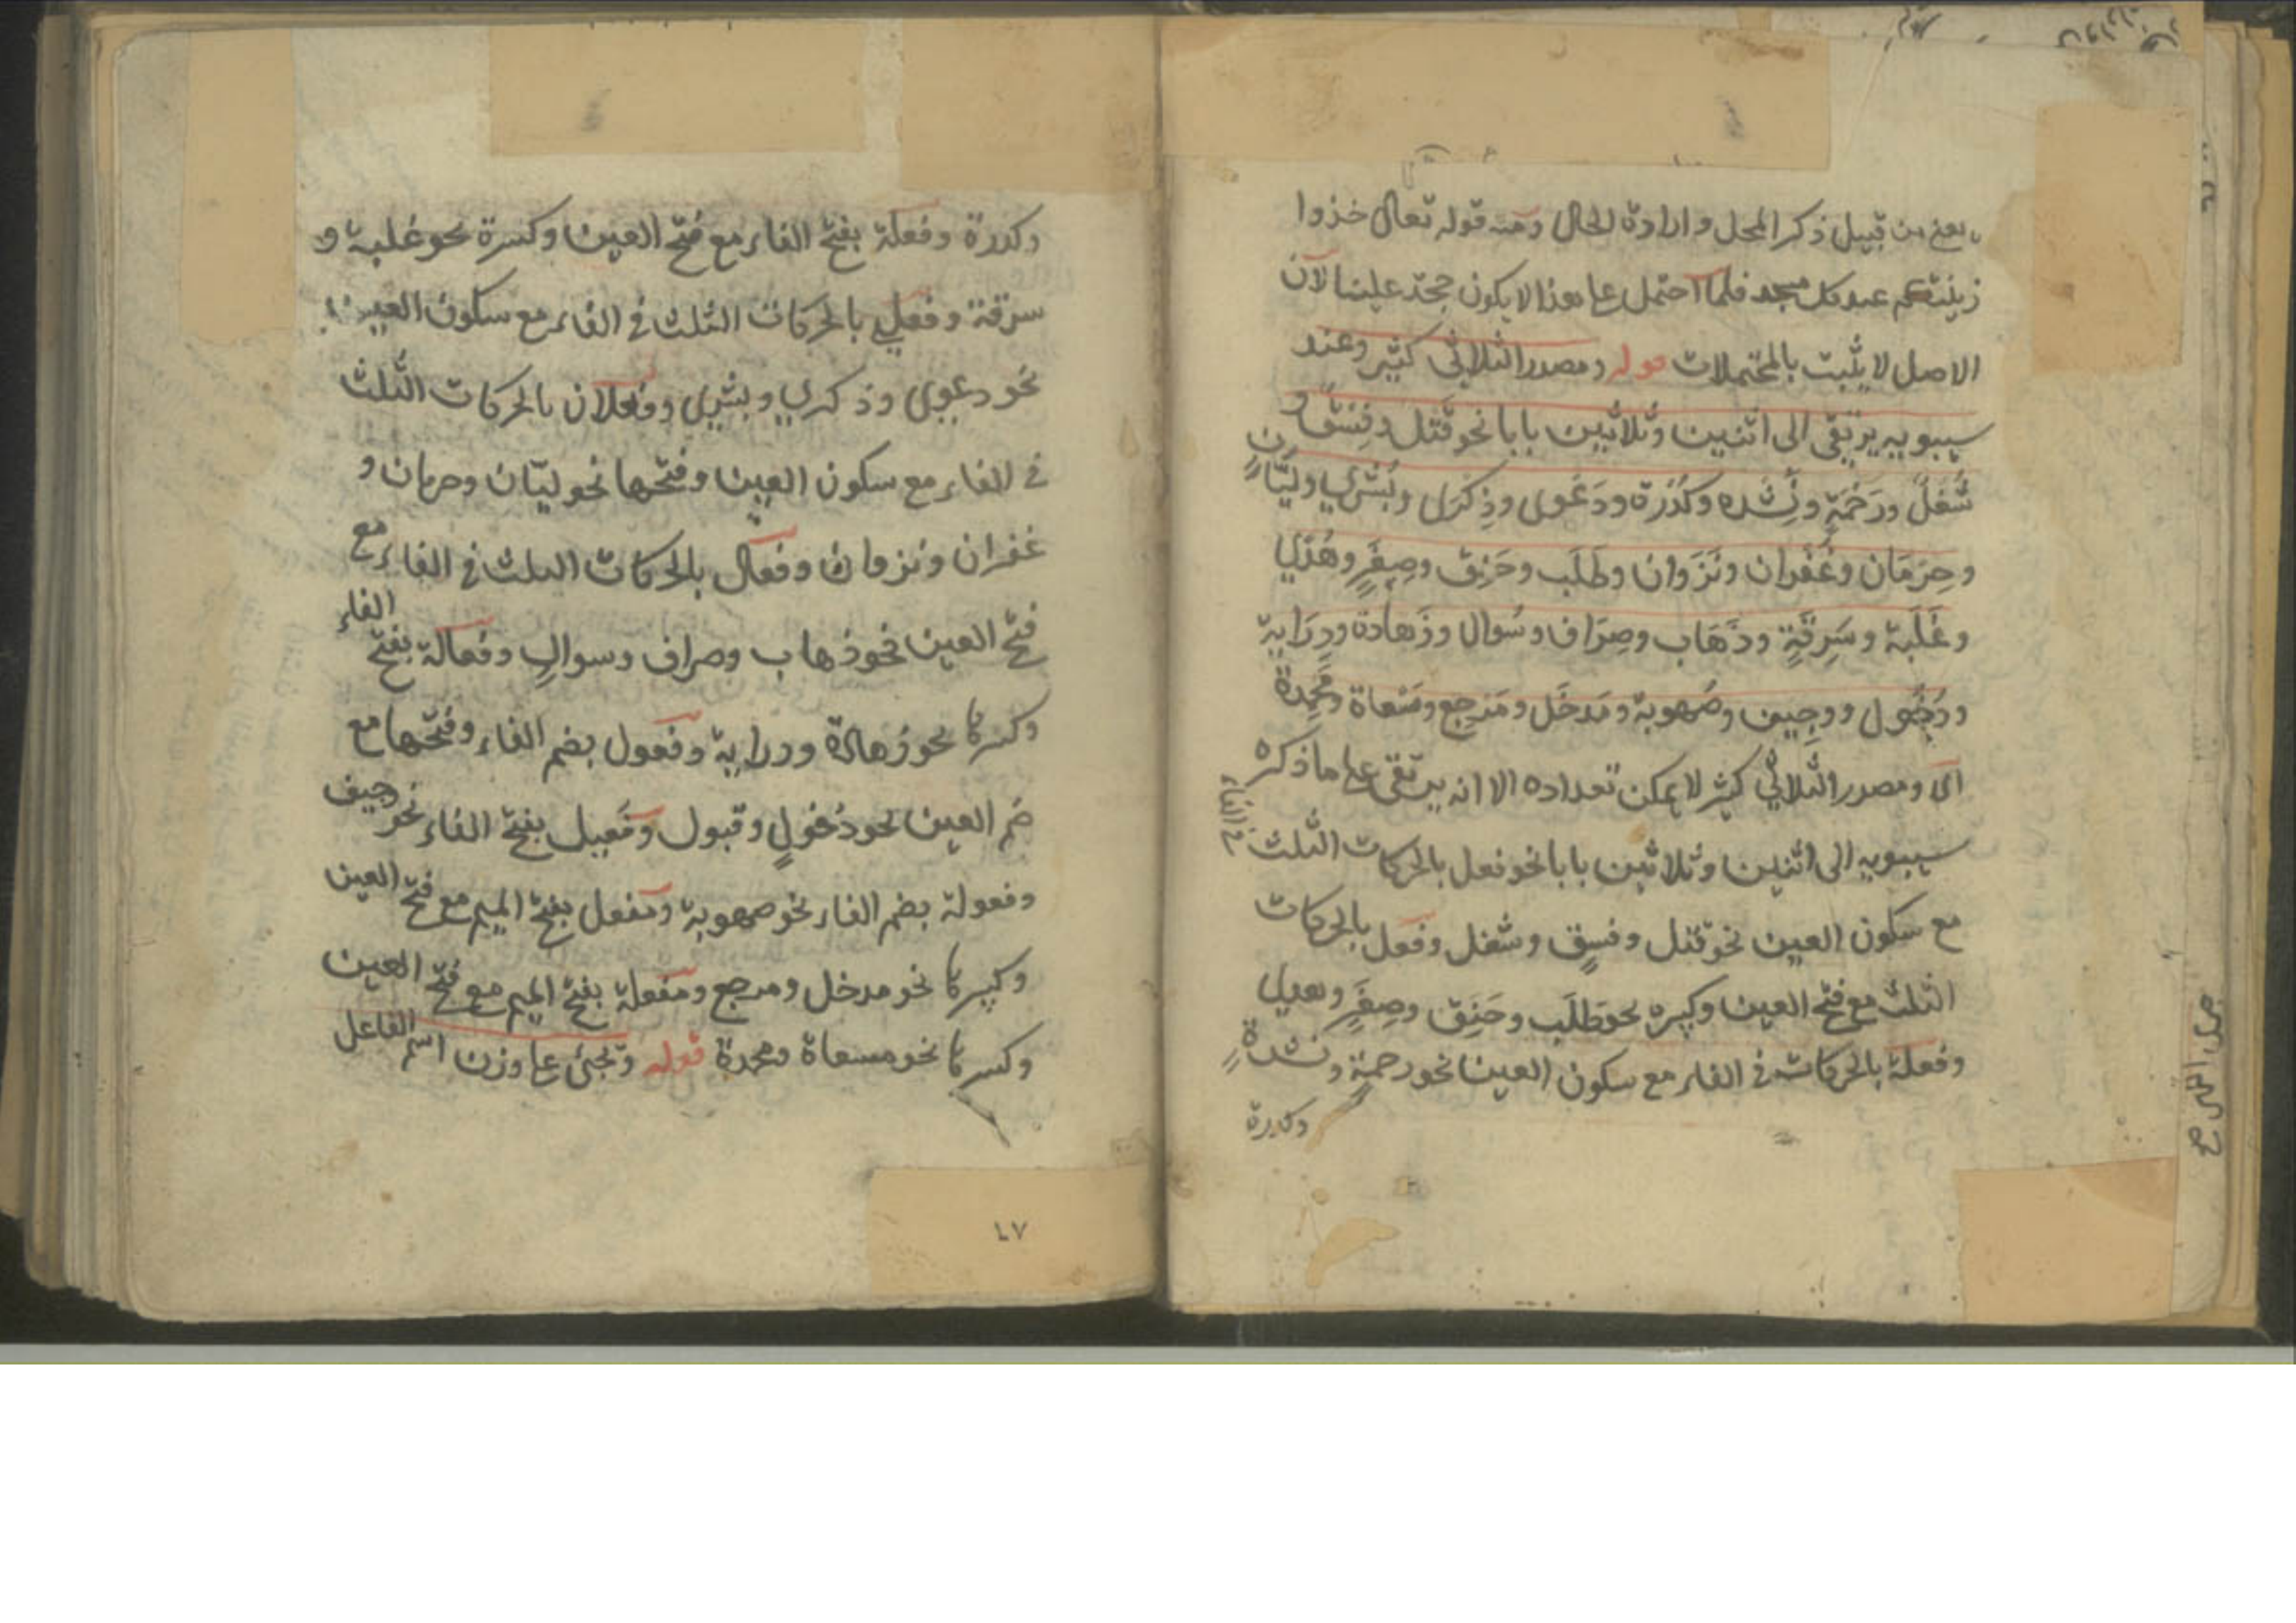 يعني من قبيل ذكر المحل وارادة الحال ومنه قوله تعالى خذوا
زينتكم عند كل مسجد فلما احتمل على هذا لا يكون حجة علينا لان
الاصل لا يثبت بالمحتملات قوله ومصدر الثلاثي كثير وعند
سيبويه يرتقى الى اثنين وثلاثين بابا نحو قَتْل وفِسْق و
شُغْل ورَحْمَةٍ ونِشْدة وكُدْرَة ودَعْوى وذِكْرَى وبُشْرى وليَّانٍ
وحِرْمَان وغُفْران ونَزَوان وطَلَب وخَنِق وصِغَرٍ وهُدًى
وغَلَبة وسَرِقَةٍ وذَهَاب وصِرَاف وسُوال وزَهادة ودِرَاية
ودُخُول ووجِيف وصُهوبة ومَدخَل ومَرجِع ومَسْعاة ومَحْمِدة
اى ومصدر الثلاثي كثير لا يمكن تعداده الا انه يرتقى على ما ذكره
سيبويه الى اثنين وثلاثين بابا نحو فعل بالحركات الثلث في الفاء
مع سكون العين نحو قتل وفسقٍ وشغل وفعل بالحركات
الثلث مع فتح العين وكسره نحو طَلَب وخَنِق وصِغَرٍ وهديل
وفعلة بالحركات في الفاء مع سكون العين نحو رحمةٍ ونشدةٍ
وكدرة
وكدرة وفعلة بفتح الفاء مع فتح العين وكسرة نحو غلبة و
سرقة وفعلى بالحركات الثلث في الفاء مع سكون العين
نحو دعوى وذكرى وبشرى وفعلان بالحركات الثلث
في الفاء مع سكون العين وفتحها نحو ليّان وحرمان و
غفران ونزوان وفعال بالحركات الثلث في الفاء مع
فتح العين نحو ذهاب وصراف وسوالٍ وفعالة بفتح الفاء
وكسرها نحو زهادة ودراية وفعول بضم الفاء وفتحها مع
ضم العين نحو دُخولٍ وقبول وفَعيل بفتح الفاء نحو وجيف
وفعولة بضم الفاء نحو صهوبة ومفعل بفتح الميم مع فتح العين
وكسرها نحو مدخل ومرجع ومفعلة بفتح الميم مع فتح العين
وكسرها نحو مسعاة ومحمدة قوله وتجئ على وزن اسم الفاعل
٤٧